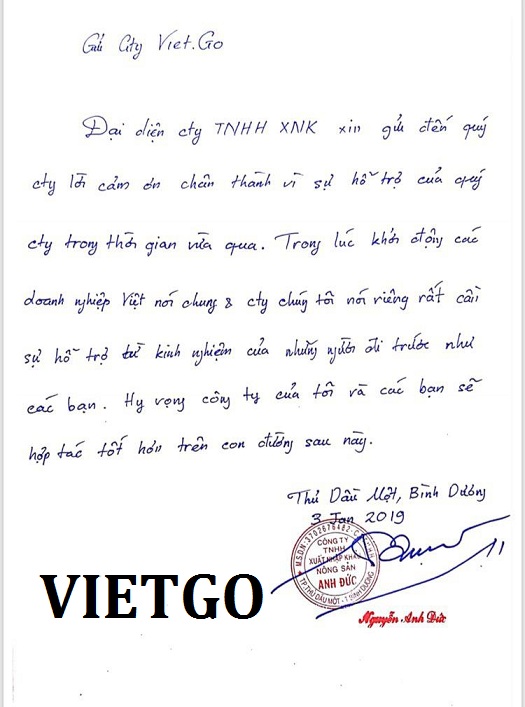 Gửi Cty Viet.Go
Đại diện cty TNHH XNK xin gửi đến quý
cty lời cảm ơn chân thành vì sự hỗ trợ của quý
cty trong thời gian vừa qua. Trong lúc khởi động các
doanh nghiệp Việt nói chung & cty chúng tôi nói riêng rất cần
sự hỗ trợ từ kinh nghiệm của những người đi trước như
các bạn. Hy vọng công ty của tôi và các bạn sẽ
hợp tác tốt hơn trên con đường sau này.
Thủ Dầu Một, Bình Dương
3 Jan 2019
M.S.D.N:3702676482-C.T.T.N.H.H
CÔNG TY
TNHH
XUẤT NHẬP KHẨU
NÔNG SẢN
ANH ĐỨC
TP.THỦ DẦU MỘT - T.BÌNH DƯƠNG
VIETGO
Nguyễn Anh Đức